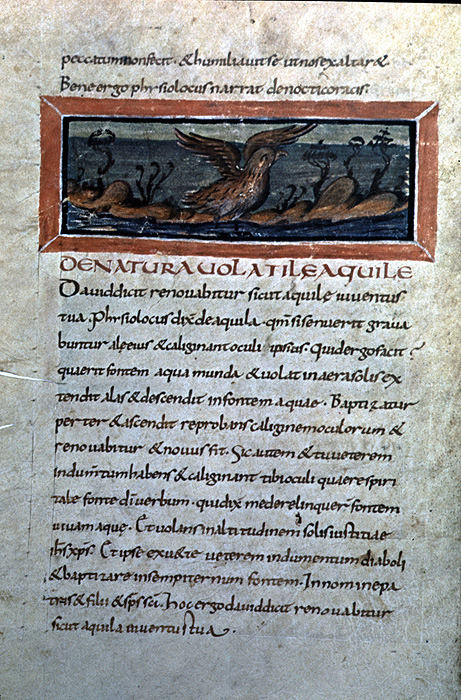 peccatum non fecit · & humiliavit se ut nos exaltar&
Bene ergo phisiolocus narrat de nocticoracis·
DE NATURA UOLATILĘ AQUILE
Dauid dicit renouabitur sicut aquilę iuuentus
tua · Phisiolocus dix̄ de aquila · qm̄ si senuerit graua
buntur alę eius & caliginant oculi ipsius · Quid ergo facit ?
quaerit fontem aqua munda & uolat in aera solis ex
tendit alas & descendit in fontem aquae · Baptizatur
per ter & ascendit reprobans caliginem oculorum &
renouabitur & nouus fit · Sic autem & tu ueterem
indum̄tum habens & caliginant tibi oculi quaere spiri
tale fonte dī uerbum · qui dix̄ me derelinquer fontem
uiuam aquę · Et uolans in altitudinem solis iustitiae
ih̄s xp̄s · Et ipse exu&e ueterem indumentum diaboli
& baptizare in sempiternum fontem · In nomine pa
tris & filii & sp̄s sc̄i · Hoc ergo dauid dicit renouabitur
sicut aquila iuuentus tua ·